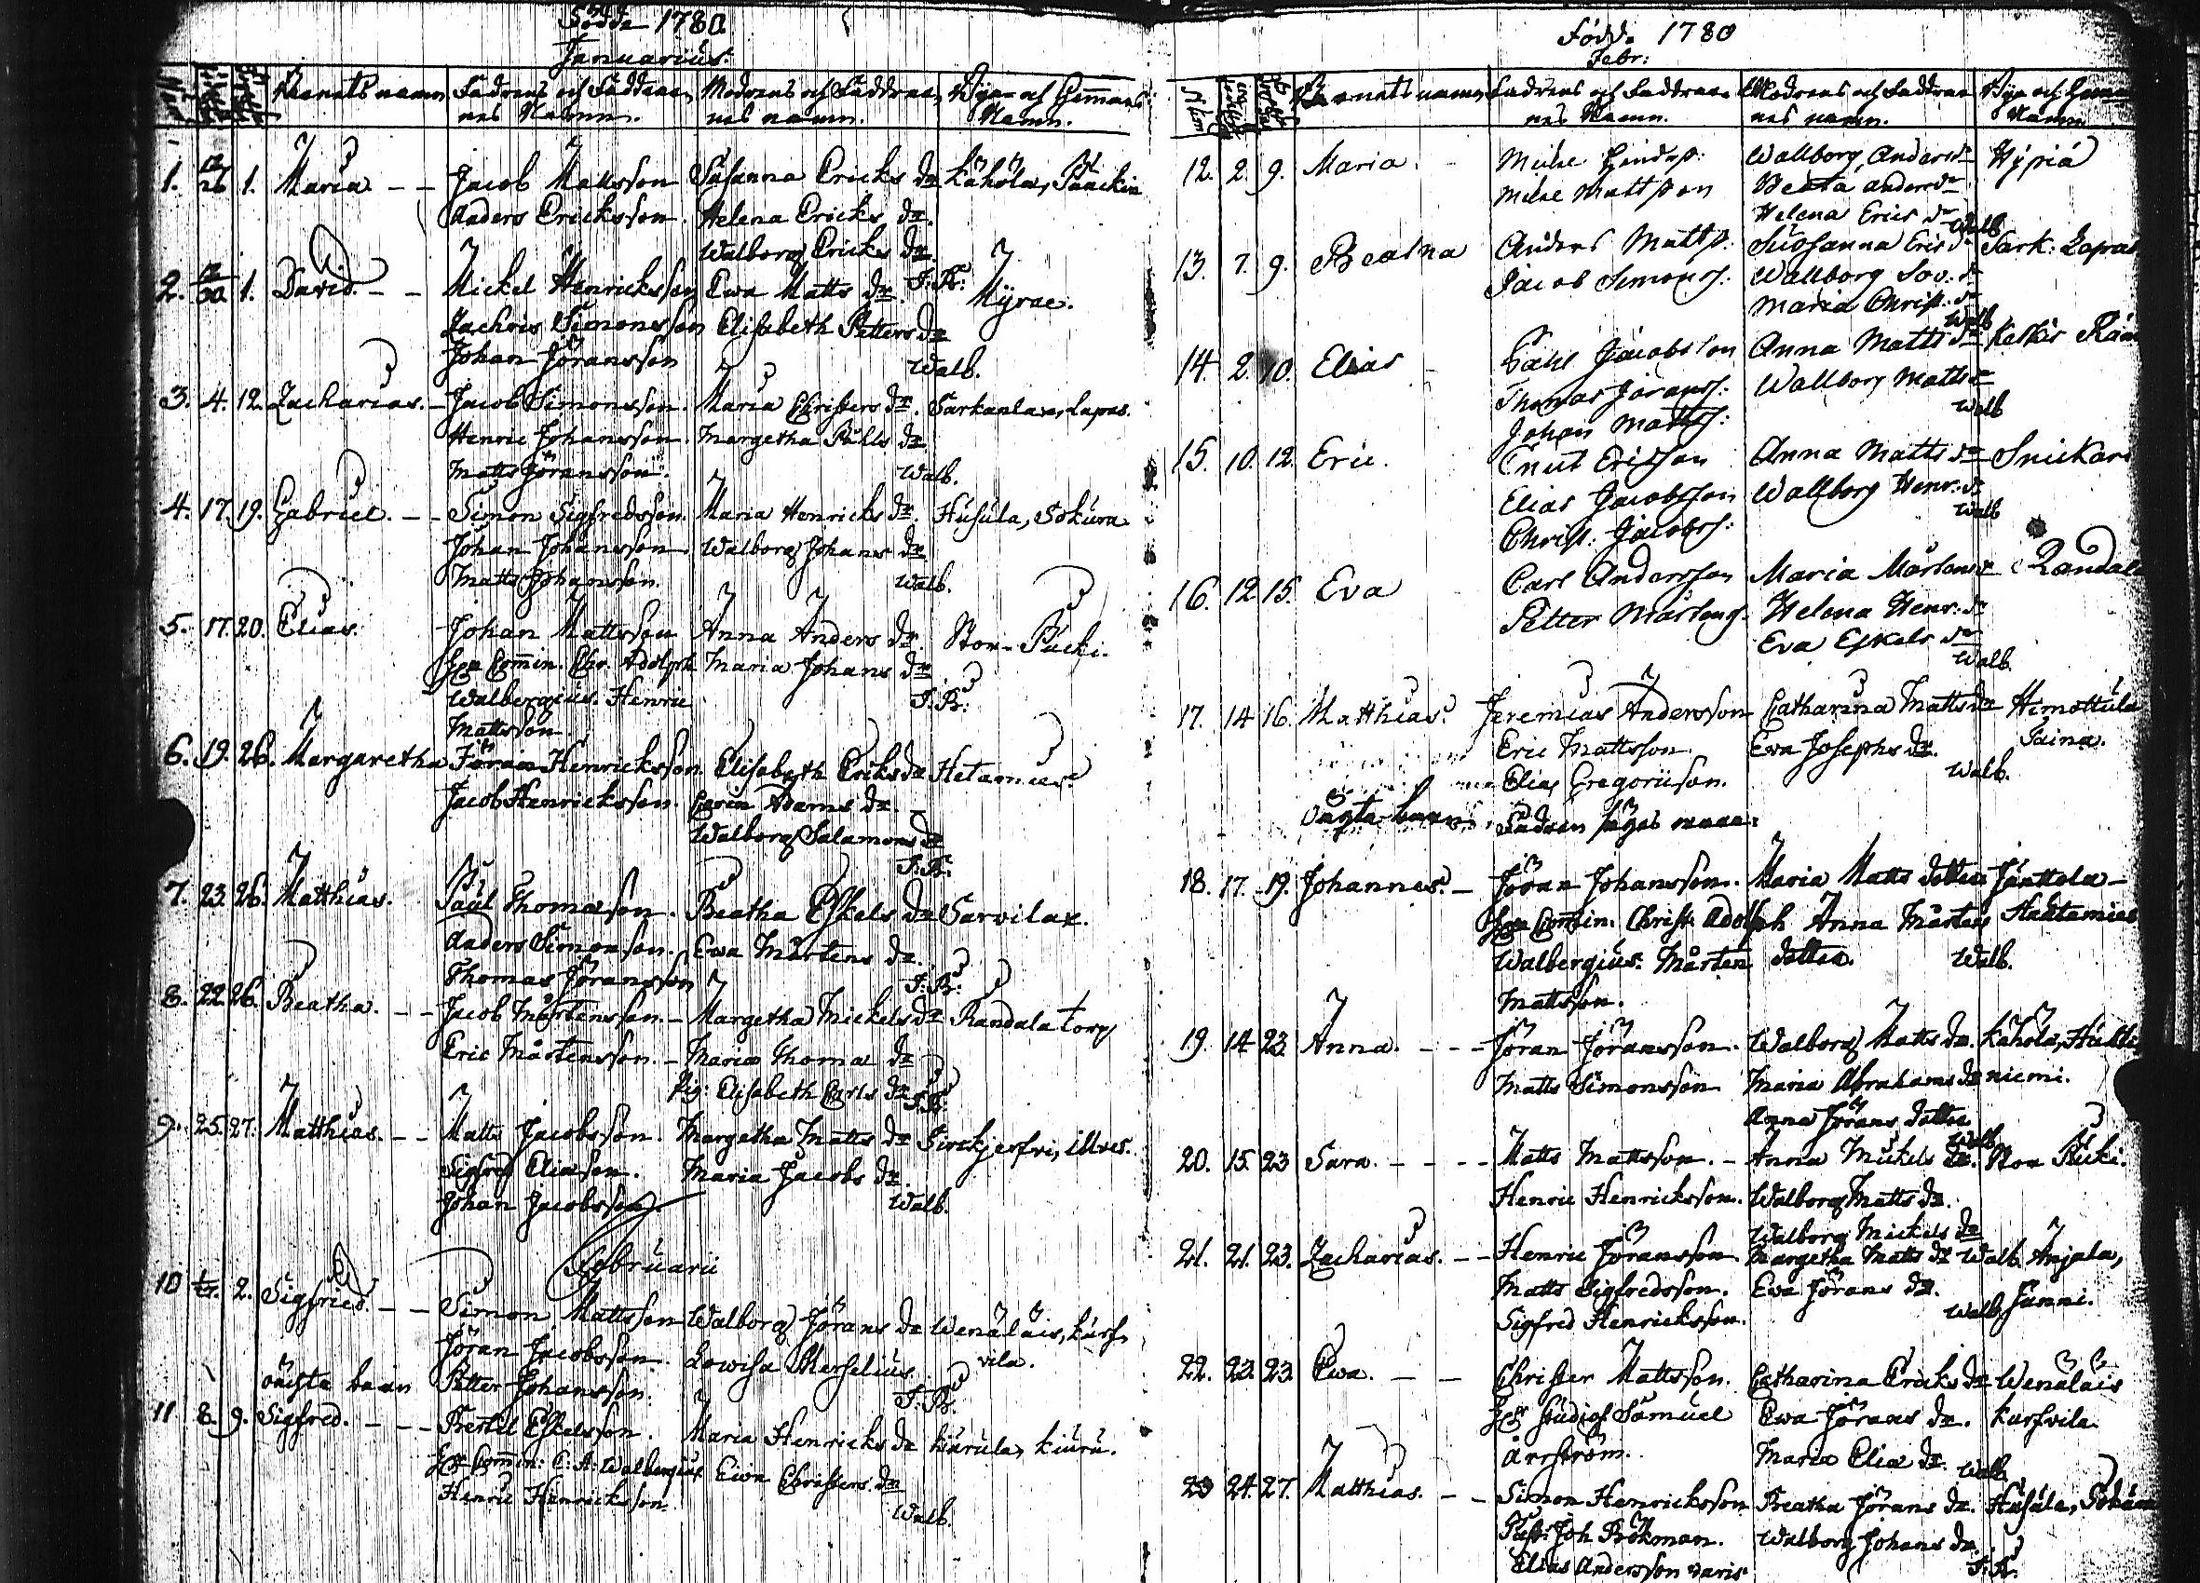 Födde 1780.
Januarius.
Barnets namn Fadrens och Faddrar- Modrens och Faddrar- Byns och Hemmans
nes Namn. nes namn. Namn.
1. 12/26 1. Maria - - Jacob Mattsson Susanna Ericks dr Kähölä,
Anders Ericksson. Helena Ericks dr.
Walborg Ericks dr.
2. 12/30 1. David. - - Mickel Henricksson Ewa Matts dr. F. Br: Myrae.
Zachris Simonsson Elisabeth Petters dr
Johan Jöransson Walb.
3. 4. 12. Zacharias. - Jacob Simonsson. Maria Christers dr. Sarkanlax, Lapas.
Henric Johansson Margetha Påhls dr
Matts Jöransson. Walb.
4. 17. 19. Gabriel. - - Simon Sigfredsson. Maria Henricks dr. Husula, Sokura
Johan Johansson Walborg Johans dr
Matts Johansson. Walb.
5. 17. 20. Elias. Johan Mattsson Anna Anders dr. Stor-Pucki.
Commin. Chr. Adolph Maria Johans dr
Walbergius. Henric F. Br:
Mattsson
6. 19. 26. Margaretha Jöran Henricksson. Elisabeth Eriks dr Hetamies.
Jacob Henricksson. Carin Adams dr.
Walborg Salamons dr
F. Br.
7. 23. 26. Matthias. Paul Thomasson. Beatha Eskels dr Sarvilax.
Anders Simonsson. Ewa Mårtens dr.
Thomas Jöransson F. Br:
8. 22. 26. Beatha. - - Jacob Mårtensson. - Margetha Mickels dr Randala torp
Eric Mårtensson. - Maria Thomæ dr
Pig: Elisabeth Carls dr F. Br.
9. 25. 27. Matthias. - - Matts Jacobsson. Margetha Matts dr
Sigfred Eliasson. Maria Jacobs dr
Johan Jacobsson. Walb.
Februarii
10 2. Sigfried. - - Simon Mattsson Walborg Jörans dr Wenäläis, Kurf-
Jöran Jacobsson. Lowisa Marselius vila.
oächta barn Petter Johansson. F. Br.
11 8. 9. Sigfred. - - Bertil Eskelsson. Maria Henricks dr Kiurula, Kiuru.
Commin: C. A. Walbergius Ewa Christers dr
Henric Henricksson. Walb.
Födde 1780
Febr:
Barnets namn Fadrens och Faddrar- Modrens och Faddrar- Byns och Hemm
nes Namn. nes namn. Namn
12. 2. 9. Maria. - Walborg Anders dr Hypiä
Beata Anders dr
Helena Erics dr Walb
13. 7. 9. Beatha Anders Matts. Susanna Erics dr Sark: Lapas
Jacob Simonss. Wallborg
Maria Christ. dr Walb
14. 2. 10. Elias - Påhl Jacobsson Anna Matts dr Keltis
Thomas Jöranss. Wallborg Matts dr
Johan Mattss: Walb
15. 10. 12. Eric. Cnut Ericsson Anna Matts dr Snickars
Elias Jacobsson Wallborg Henr. dr
Christ. Jacobss. Walb
16. 12 15. Eva Carl Andersson Maria Mårtens dr Randala
Petter Mårtens. Helena Henr. dr
Eva Eskels dr
Walb.
17. 14 16. Matthias. Jeremias Andersson Catharina Matts dr Himottula
Eric Mattsson. Ewa Josephs dr. Saina.
Elias Gregoriisson. Walb.
oägta barn. Fadren säges
18. 17. 19. Johannes. - Jöran Johansson. Maria Matts dotter Junttola -
Commin: Christ. Adolph Anna Mårtens
Walbergius. Mårten dotter. Walb.
Mattsson.
19. 14 23. Anna. - - - Jöran Jöransson. Walborg Matts dr. Kähölä,
Matts Simonsson Maria Abrahams dr niemi.
Anna Jörans dotter Walb.
20. 15. 23 Sara. - - - - Matts Mattsson. - Anna Mickels dr. Stor Pucki.
Henric Henricksson. Walborg Matts dr.
Walborg Mickels dr
21. 21. 23. Zacharias. - - Henric Jöransson Margetha Matts dr Walb. Anjala,
Matts Sigfredsson. Ewa Jörans dr. Junni.
Sigfred Henricksson. Walb.
22. 23. 23. Ewa. - - Christer Mattsson. Catharina Ericks dr Wenäläis
Samuel Ewa Jörans dr. Kurfvila
Arrström. Maria Eliæ dr. Walb
23 24. 27. Matthias. - - Simon Henricksson Beatha Jörans dr. Husula,
Joh Brökman. Walborg Johans dr.
Elias Andersson F. Br.